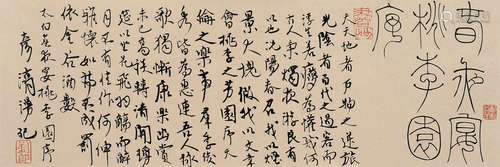 春夜宴
桃李園
序
夫天地者万物之逆旅
光陰者百代之過客而
浮生若夢為歡幾何
古人秉燭夜遊良有
以也況陽春召我以煙
景大塊假我以文章
會桃李之芳園序天
倫之樂事群季俊
秀皆為惠連吾人詠
歌獨慚康樂幽賞
未已高談轉清開瓊
筵以坐花飛羽觴而醉
月不有佳作何伸
雅懷如詩不成罰
依金谷酒數
太白春夜宴桃李園序